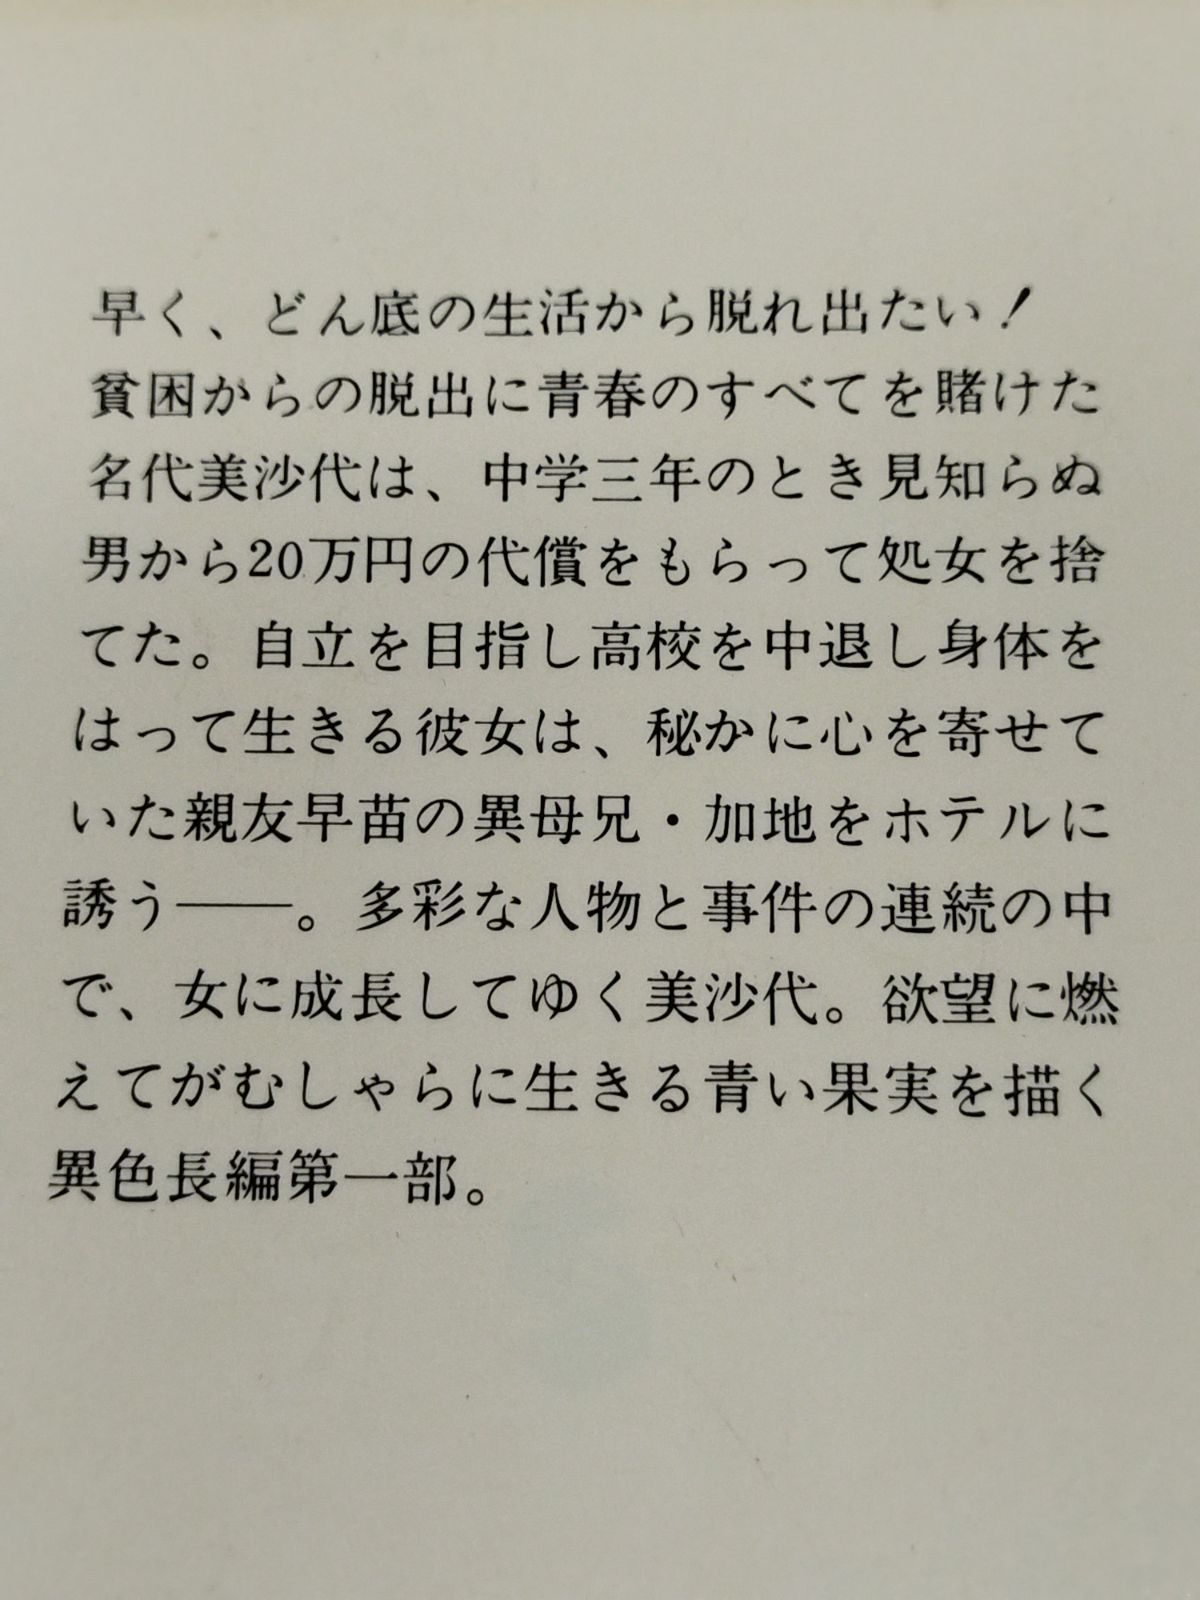 早く、どん底の生活から脱れ出たい！
貧困からの脱出に青春のすべてを賭けた
名代美沙代は、中学三年のとき見知らぬ
男から20万円の代償をもらって処女を捨
てた。自立を目指し高校を中退し身体を
はって生きる彼女は、秘かに心を寄せて
いた親友早苗の異母兄・加地をホテルに
誘う――。多彩な人物と事件の連続の中
で、女に成長してゆく美沙代。欲望に燃
えてがむしゃらに生きる青い果実を描く
異色長編第一部。